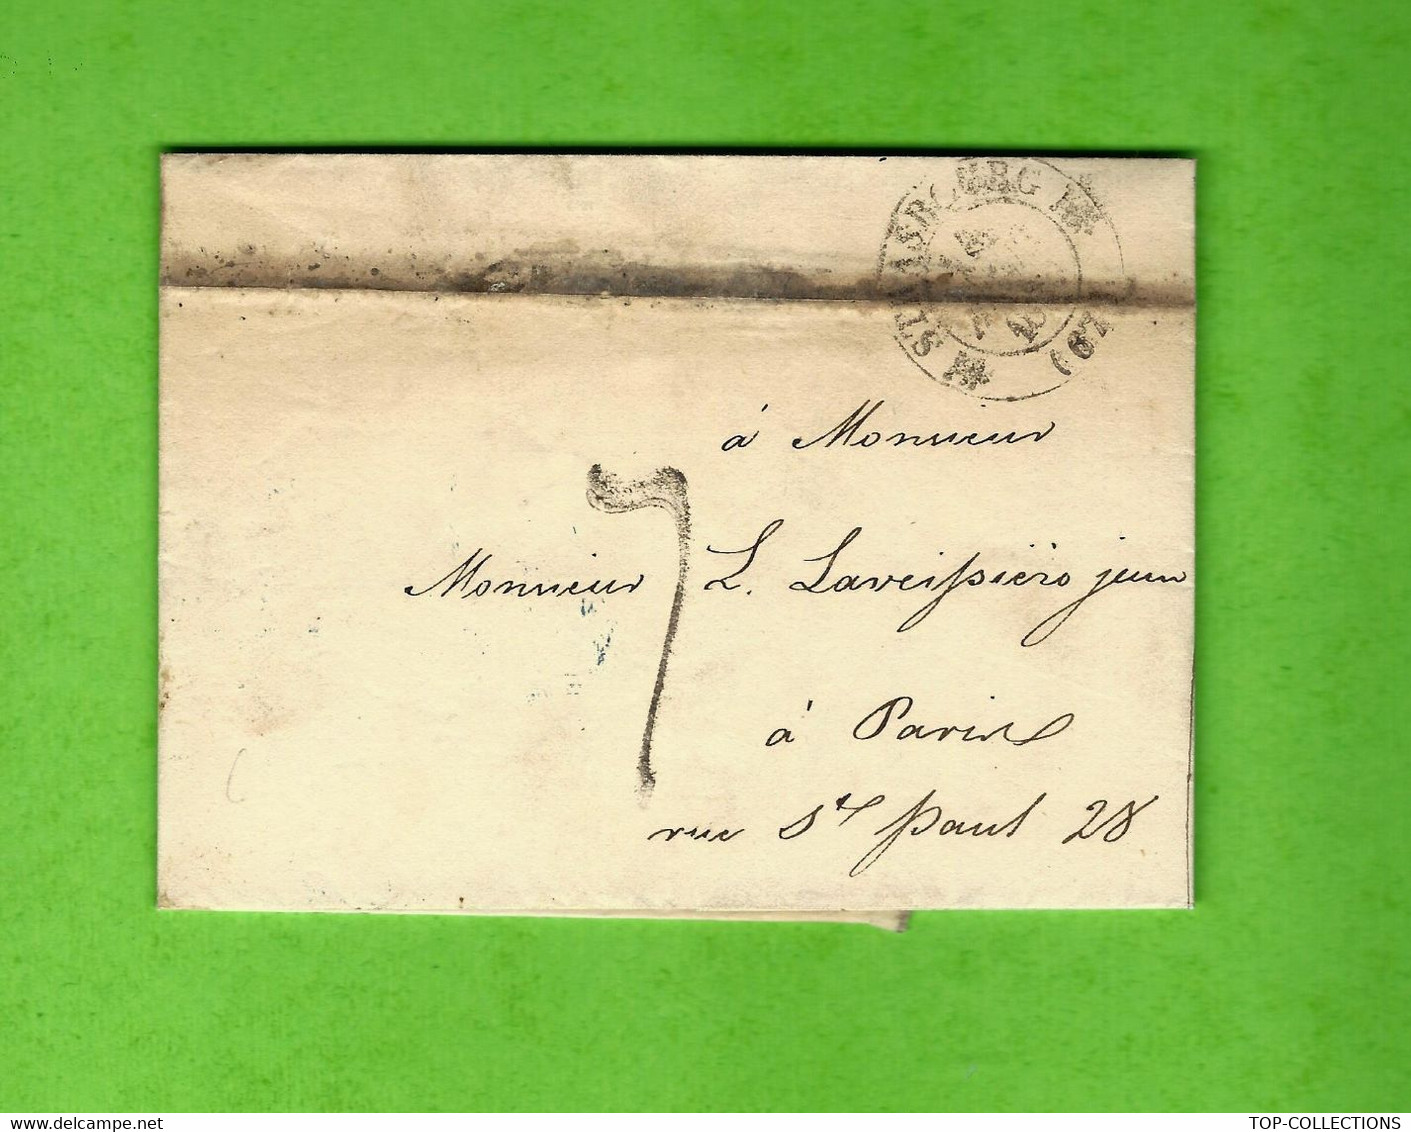 STRASBOURG
(67)
à Monsieur
7
Monsieur L. Laveissière jeune
à Paris
rue St Paul 28
TOP-COLLECTIONS